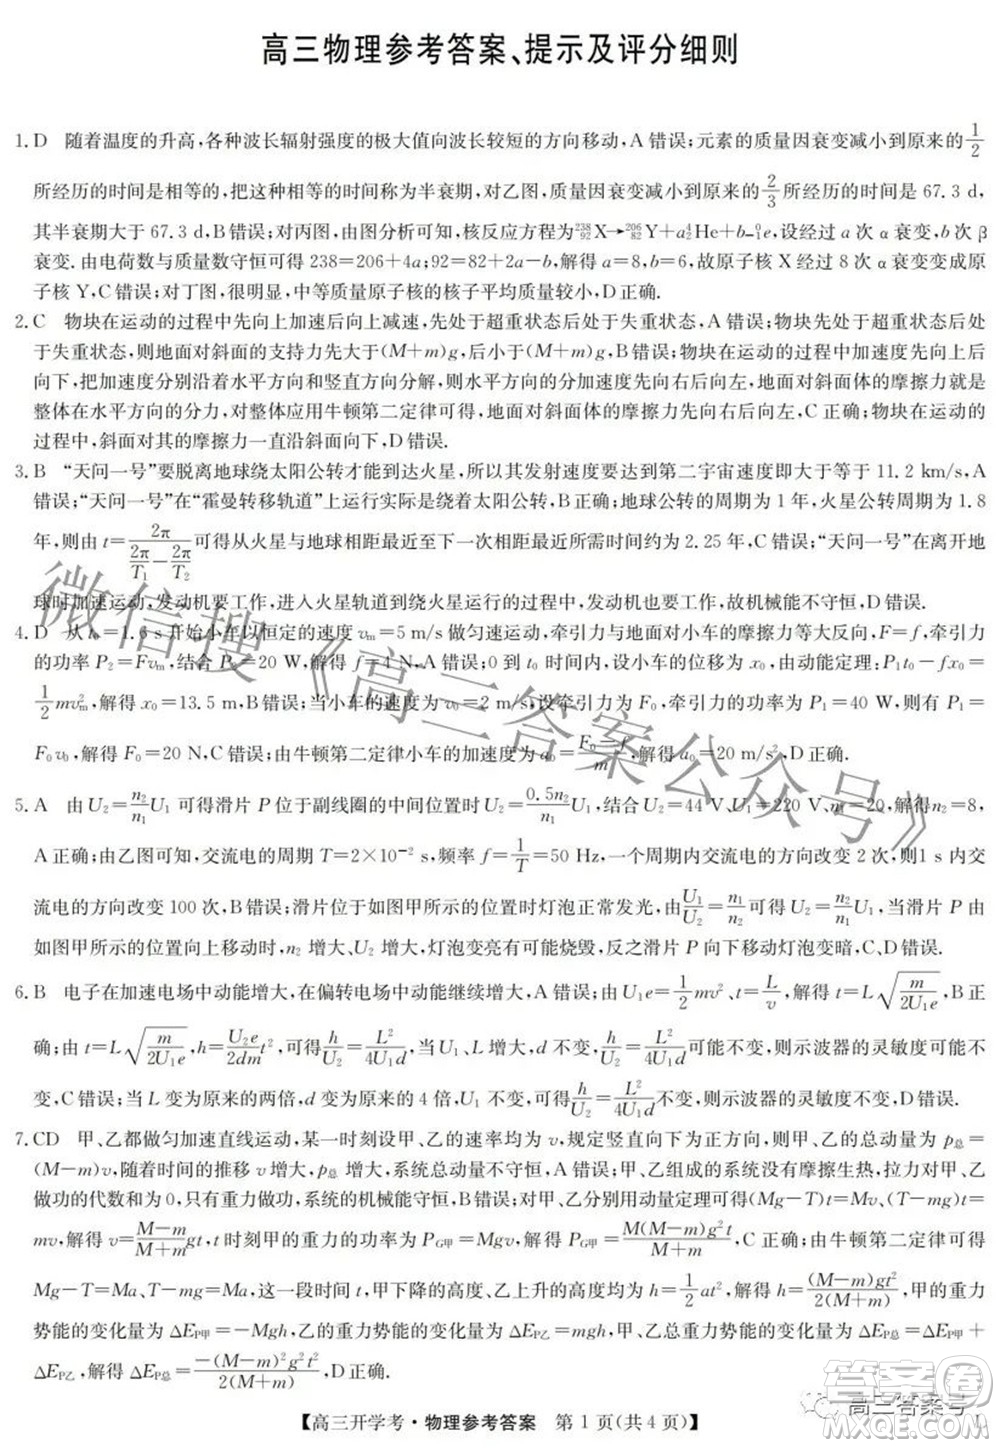 高三物理参考答案、提示及评分细则
1. D 随着温度的升高,各种波长辐射强度的极大值向波长较短的方向移动,A 错误;元素的质量因衰变减小到原来的1/2
所经历的时间是相等的,我们把这种相等的时间称为半衰期,对乙图,质量因衰变减小到原来的2/3所经历的时间是 67.3 d,
其半衰期大于 67.3 d,B 错误;对丙图,由图分析可知,核反应方程为²³⁸₉₂X→²⁰⁶₈₂Y+a⁴₂He+b⁰₋₁e,设经过 a 次 α 衰变,b 次 β
衰变.由电荷数与质量数守恒可得 238=206+4a;92=82+2a−b,解得 a=8,b=6,故原子核 X 经过 8 次 α 衰变变成原
子核 Y,C 错误;对丁图,很显然,中等质量原子核的核子平均质量较小,D 正确.
2. C 物块在运动的过程中先向上加速后向上减速,先处于超重状态后处于失重状态,A 错误;物块先处于超重状态后处
于失重状态,则地面对斜面的支持力先大于(M+m)g,后小于(M+m)g,B 错误;物块在运动的过程中加速度先向上后向
下,把加速度分别沿着水平方向和竖直方向分解,则水平方向的分加速度先向右后向左,地面对斜面体的摩擦力就是
整体在水平方向的分力,对整体应用牛顿第二定律可得,地面对斜面体的摩擦力先向右后向左,C 正确;物块在运动的
过程中,斜面对其的摩擦力一直沿斜面向下,D 错误.
3. B “天问一号”要脱离地球绕太阳公转才能到达火星,所以其发射速度要达到第二宇宙速度即大于等于 11.2 km/s,A
错误;“天问一号”在“霍曼转移轨道”上运行实际是绕着太阳公转,B 正确;地球公转的周期为 1 年,火星公转周期为 1.8
年,则由 t=2π/(2π/T₁−2π/T₂)可得从火星与地球相距最近至下一次相距最近所需时间约为 2.25 年,C 错误;“天问一号”在离开地
球时加速运动,发动机要工作,进入火星轨道到绕火星运行的过程中,发动机也要工作,故机械能不守恒,D 错误.
4. D 从 t₀=1.6 s 开始小车以恒定的速度 vₘ=5 m/s 做匀速运动,牵引力与地面对小车的摩擦力等大反向,F=f,牵引力
的功率 P₂=Fvₘ,结合 P₂=20 W,解得 f=4 N,A 错误;0 到 t₀ 时间内,设小车的位移为 x₀,由动能定理:P₁t₀−fx₀=
1/2 mvₘ²,解得 x₀=13.5 m,B 错误;当小车的速度为 v₀=2 m/s,设牵引力为 F₀,牵引力的功率为 P₁=40 W,则有 P₁=
F₀v₀,解得 F₀=20 N,C 错误;由牛顿第二定律小车的加速度为 a₀=(F₀−f)/m,解得 a₀=20 m/s²,D 正确.
5. A 由 U₂=n₂/n₁ U₁ 可得滑片 P 位于副线圈的中间位置时 U₂=0.5n₂/n₁ U₁,结合 U₂=44 V、U₁=220 V、n₁=20,解得n₂=8,
A 正确;由乙图可知,交流电的周期 T=2×10⁻² s,频率 f=1/T=50 Hz,一个周期内交流电的方向改变 2 次,则1 s 内交
流电的方向改变 100 次,B 错误;滑片 P 在如图甲所示的位置时灯泡正常发光,由U₁/U₂=n₁/n₂可得 U₂=n₂/n₁ U₁,当滑片 P 由
如图甲所示的位置向上移动时,n₂ 增大、U₂ 增大,灯泡变亮有可能烧毁,反之滑片 P 向下移动灯泡变暗,C、D 错误.
6. B 电子在加速电场中动能增大,在偏转电场中动能继续增大,A 错误;由 U₁e=1/2 mv²、t=L/v,解得 t=L√(m/2U₁e),B 正
确;由 t=L√(m/2U₁e),h=U₂e/2dm t²,可得h/U₂=L²/4U₁d,当 U₁、L 增大,d 不变,h/U₂=L²/4U₁d可能不变,则示波器的灵敏度可能不
变,C 错误;当 L 变为原来的两倍,d 变为原来的 4 倍,U₁ 不变,可得h/U₂=L²/4U₁d不变,则示波器的灵敏度不变,D 错误.
7. CD 甲、乙都做匀加速直线运动,某一时刻设甲、乙的速率均为 v,规定竖直向下为正方向,则甲、乙的总动量为 p总=
(M−m)v,随着时间的推移 v增大,p总增大,系统总动量不守恒,A 错误;甲、乙组成的系统没有摩擦生热,拉力对甲、乙
做功的代数和为 0,只有重力做功,系统的机械能守恒,B 错误;对甲、乙分别用动量定理可得(Mg−T)t=Mv、(T−mg)t=
mv,解得 v=(M−m)/(M+m) gt,t 时刻甲的重力的功率为 PG甲=Mgv,解得 PG甲=M(M−m)g²t/(M+m),C 正确;由牛顿第二定律可得
Mg−T=Ma、T−mg=Ma,这一段时间 t,甲下降的高度、乙上升的高度均为 h=1/2 at²,解得 h=(M−m)gt²/2(M+m),甲的重力
势能的变化量为 ΔEP甲=−Mgh,乙的重力势能的变化量为 ΔEP乙=mgh,甲、乙总重力势能的变化量为 ΔEP总=ΔEP甲+
ΔEP乙,ΔEP总=−(M−m)²g²t²/2(M+m),D 正确.
【高三开学考·物理参考答案 第 1 页(共 4 页)】
微信搜《高三答案公众号》
高三答案号